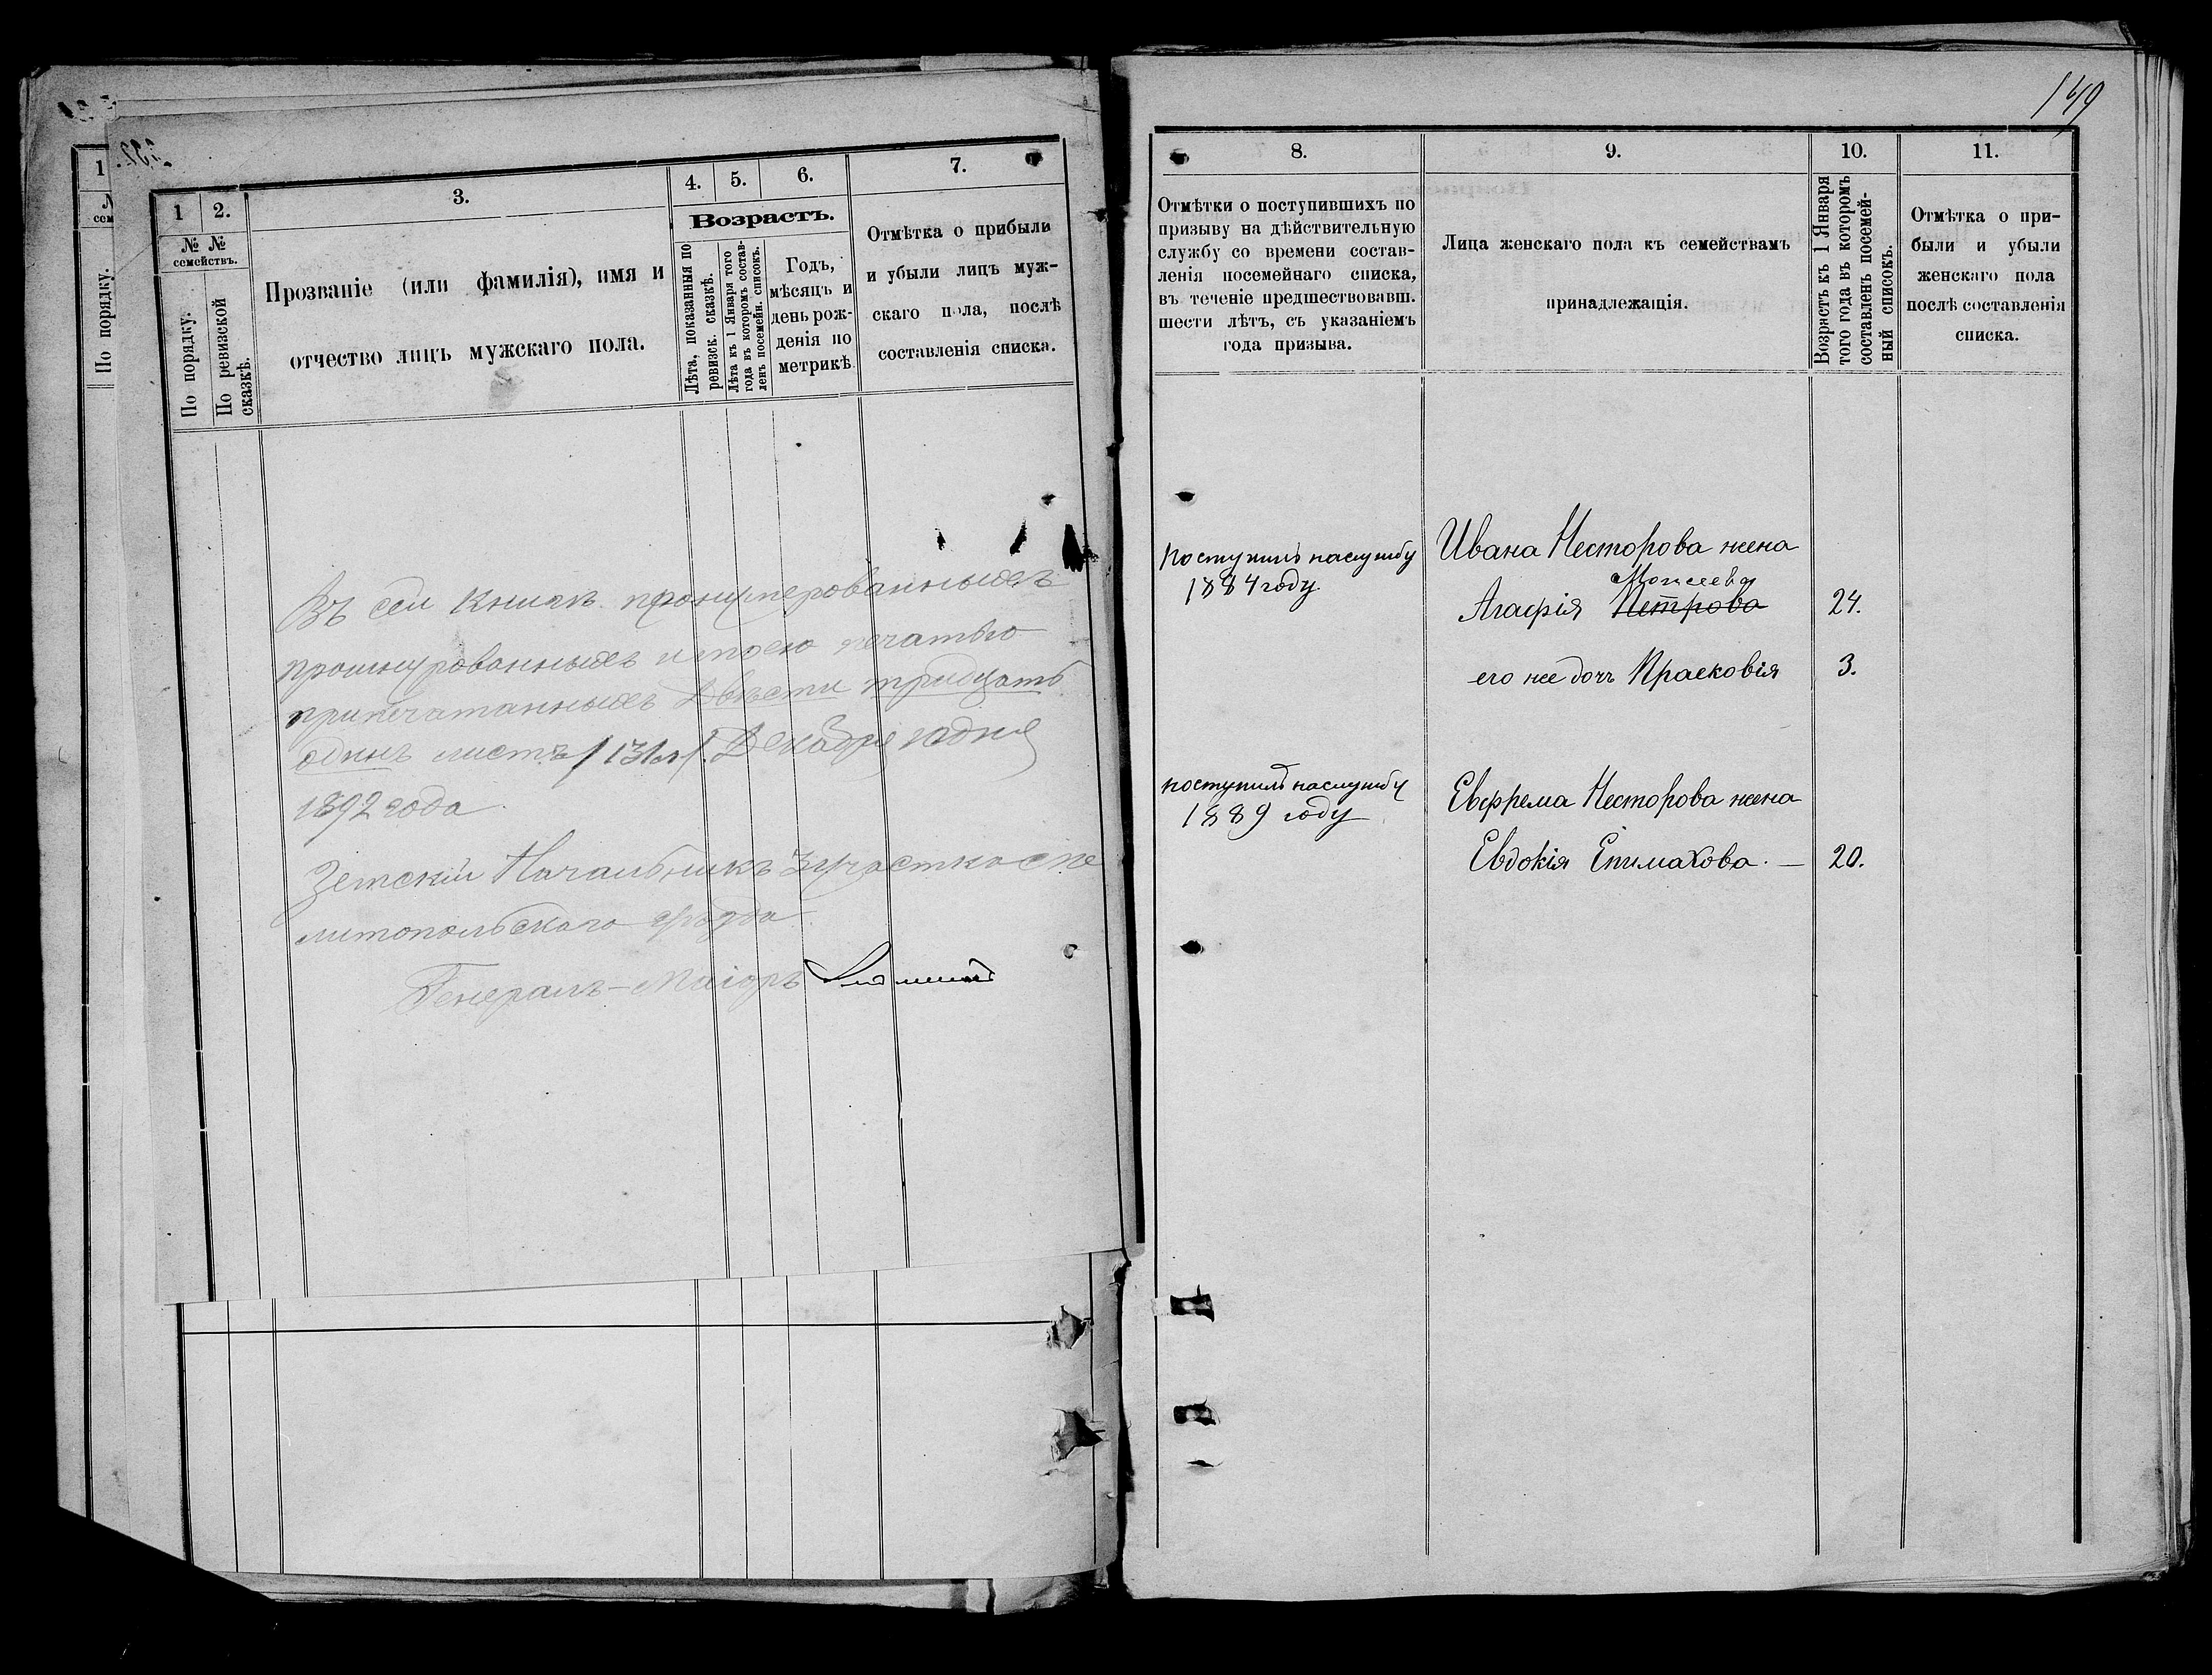 1
По порядку.
1
2.
3.
4.
5.
6.
7.
№ №
семействъ.
По порядку.
По ревизской
сказкѣ.
Прозваніе (или фамилія), имя и
отчество лицъ мужскаго пола.
Возрастъ.
Лѣта, показанныя по
ревизск. сказкѣ.
Лѣта къ 1 Января того
года въ которомъ состав-
ленъ посемейн. списокъ.
Годъ,
мѣсяцъ и
день рож-
денія по
метрикѣ
Отмѣтка о прибыли
и убыли лицъ муж-
скаго пола, послѣ
составленія списка.
Въ сей книгѣ пронумерованныхъ
прошнурованныхъ и моею печатью
припечатанныхъ Двѣсти тридцать
одинъ листъ Декабря дня
1892 года
Земскій Начальникъ 3 участка Ме
литопольскаго уѣзда
Генералъ-Маіоръ
149
8.
9.
10.
11.
Отмѣтки о поступившихъ по
призыву на дѣйствительную
службу со времени состав-
ленія посемейнаго списка,
въ теченіе предшествовавш.
шести лѣтъ, съ указаніемъ
года призыва.
Лица женскаго пола къ семействамъ
принадлежащія.
Возрастъ къ 1 Января
того года въ которомъ
составленъ посемей-
ный списокъ.
Отмѣтка о при-
были и убыли
женскаго пола
послѣ составленія
списка.
поступилъ на службу
1884 году
Ивана Несторова жена
Моисеева
Агафія Петрова 24.
его же дочь Прасковія 3.
поступилъ на службу
1889 году
Евфрема Несторова жена
Евдокія Епимахова. — 20.